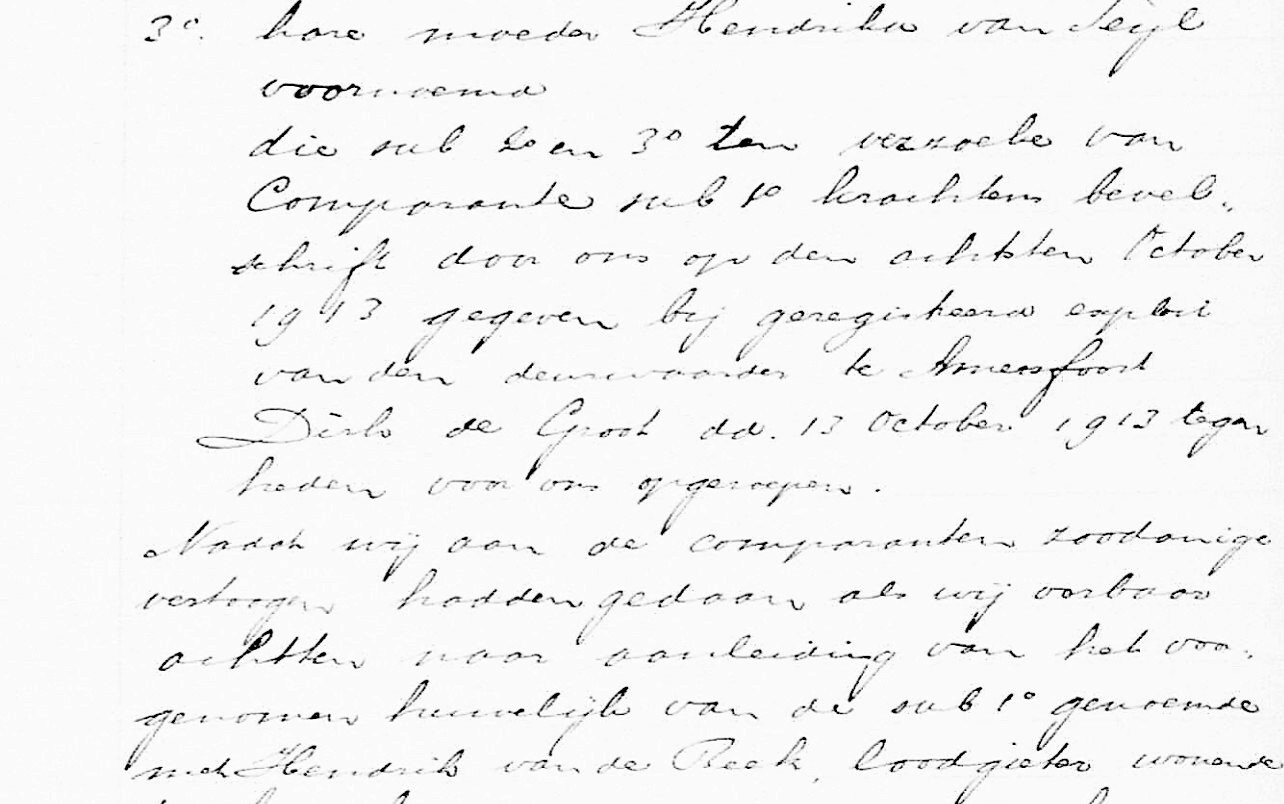 3o. hare moeder Hendrika van Seijl
voornoemd
die sub 2o en 3o ten verzoeke van
Comparante sub 1o krachtens bevel-
schrift door ons op den achtsten October
1913 gegeven bij geregistreerd exploit
van den deurwaarder te Amersfoort
Dirk de Groot dd. 13 October 1913 tegen
heden voor ons opgeroepen.
Nadat wij aan de comparanten zoodanige
vertoogen hadden gedaan als wij oorbaar
achtten naar aanleiding van het voor-
genomen huwelijk van de sub 1o genoemde
met Hendrik van de Beek, loodgieter wonende